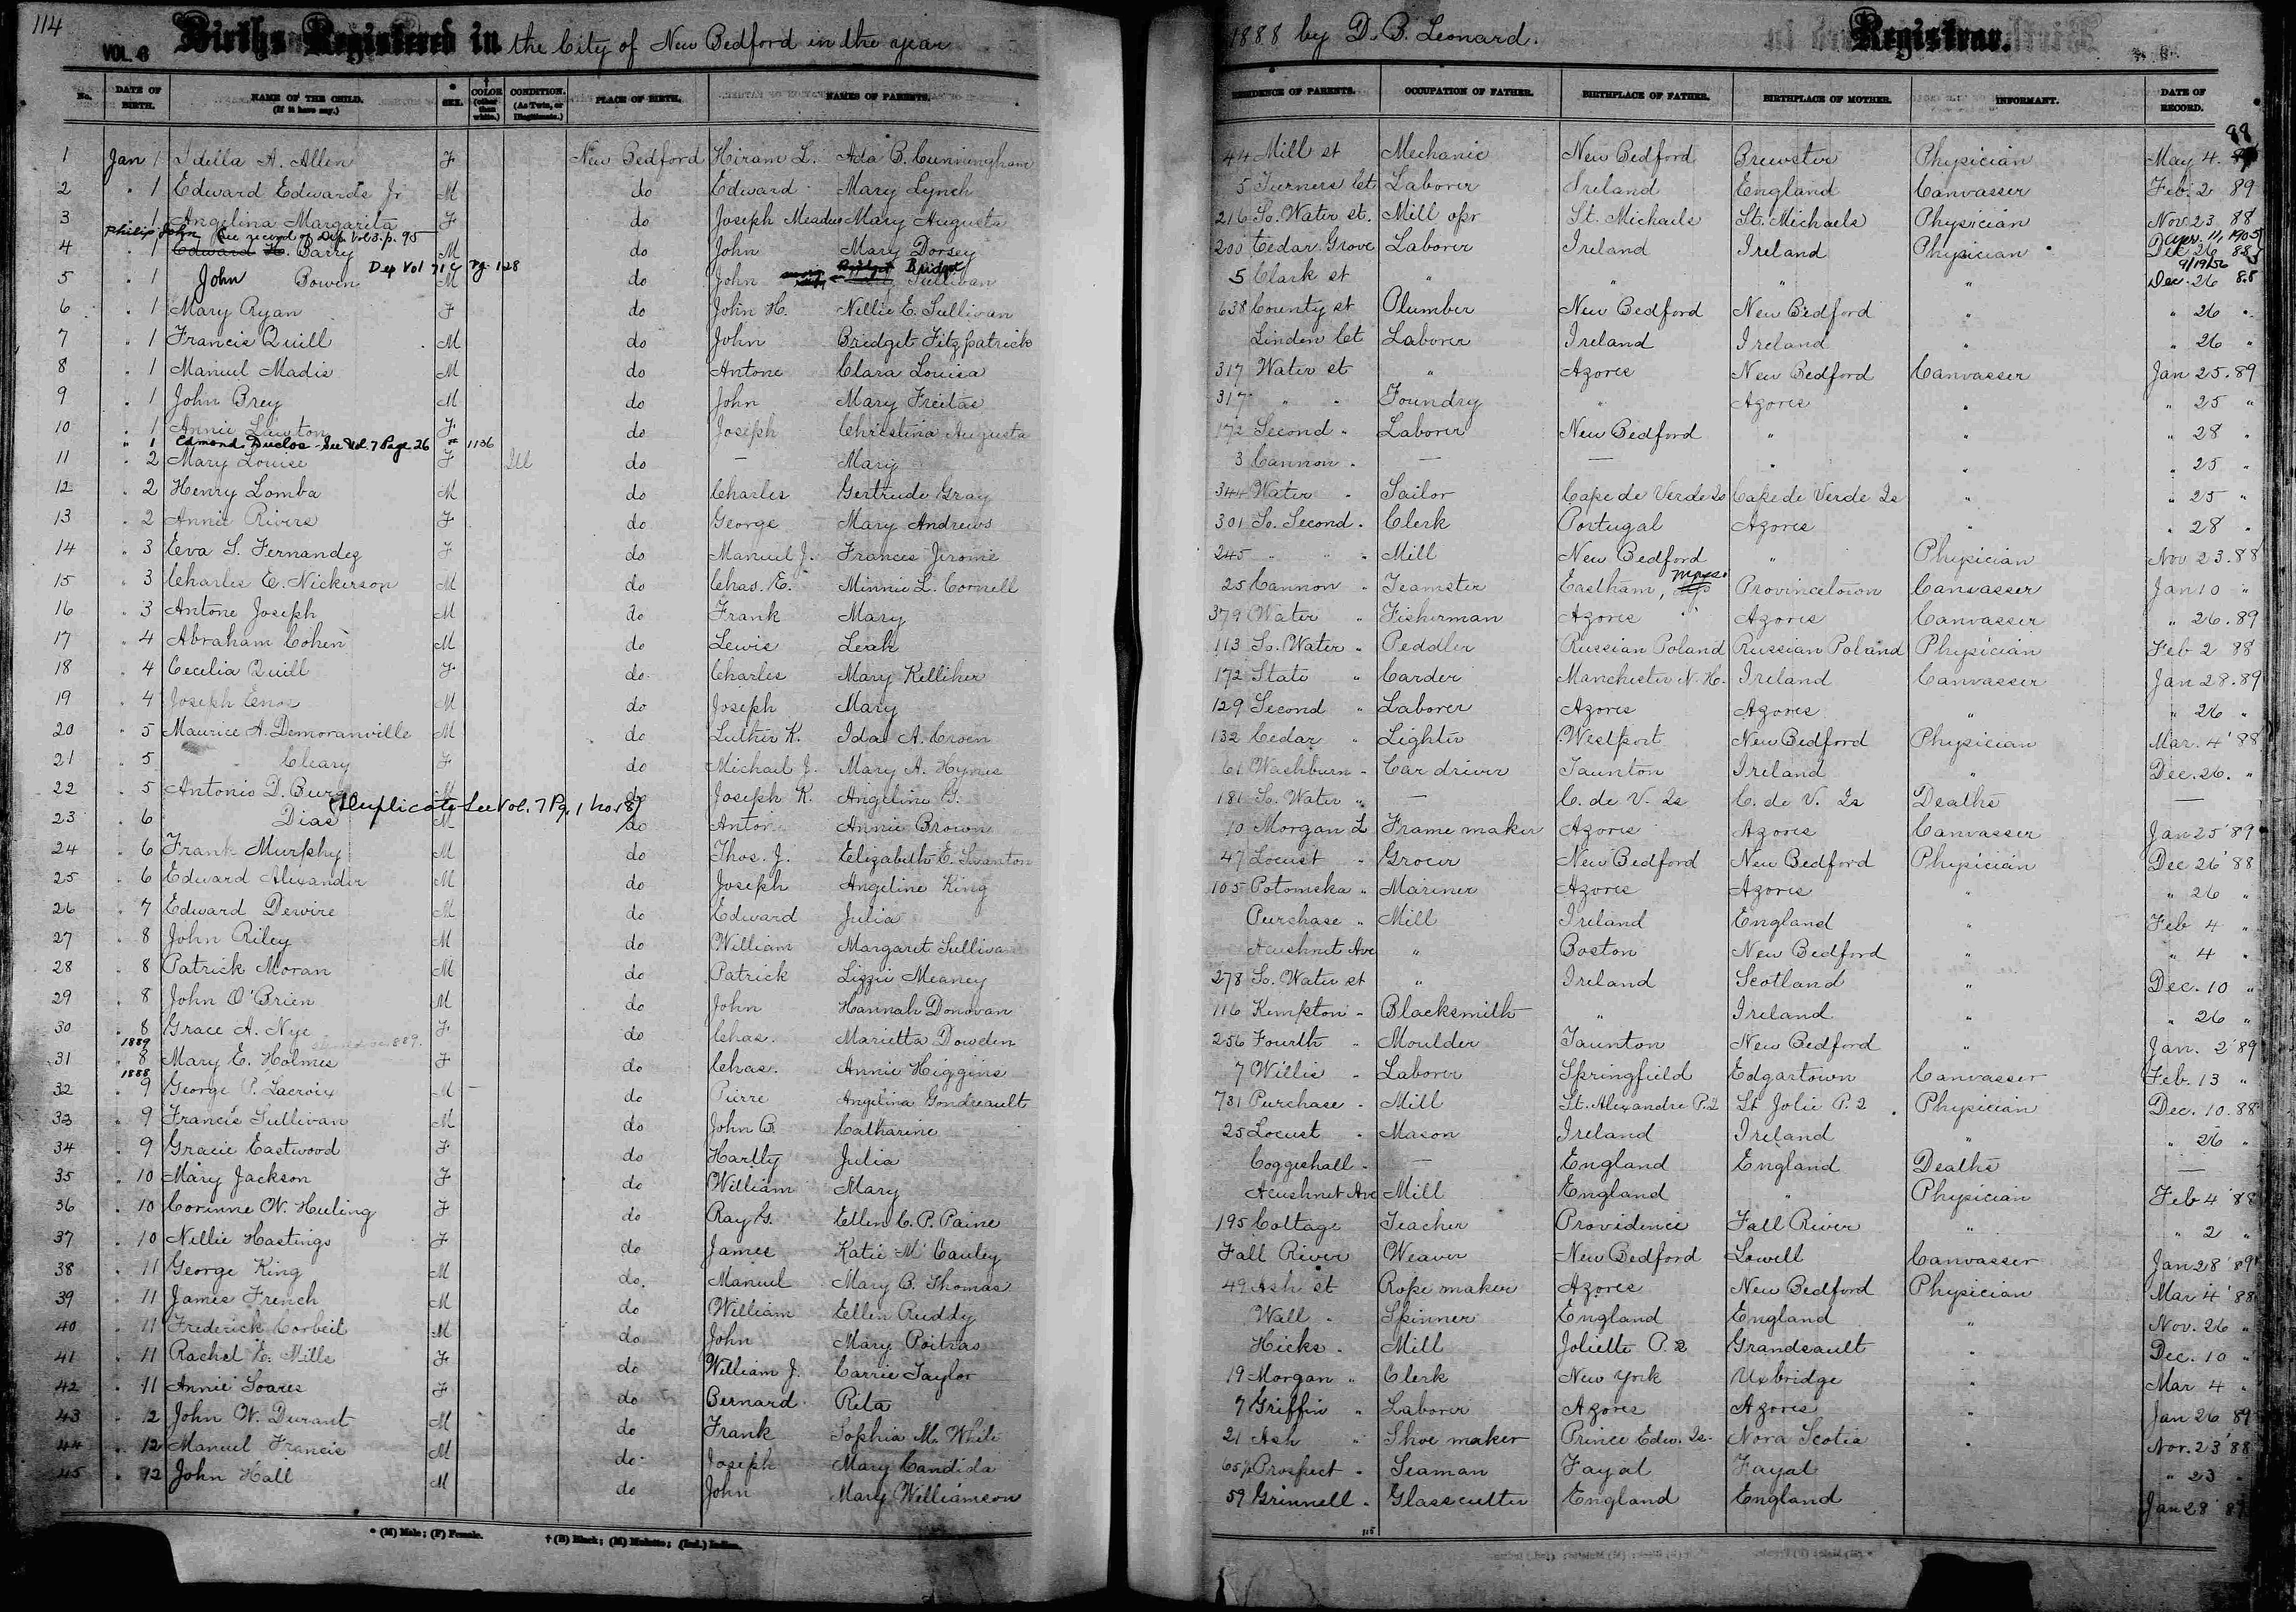 114
VOL. 6 Births Registered in the City of New Bedford in the year 1888 by D. B. Leonard. Registrar.
No. DATE OF BIRTH. NAME OF THE CHILD. (If it have any.) SEX. COLOR (other than white.) CONDITION. (As Twin, or Illegitimate.) PLACE OF BIRTH. NAMES OF PARENTS. RESIDENCE OF PARENTS. OCCUPATION OF FATHER. BIRTHPLACE OF FATHER. BIRTHPLACE OF MOTHER. INFORMANT. DATE OF RECORD.
1 Jan 1 Idella A. Allen F New Bedford Hiram L. Ada B. Cunningham 44 Mill st Mechanic New Bedford Brewster Physician May 4. 88
2 " 1 Edward Edwards Jr M do Edward Mary Lynch 5 Turners Ct Laborer Ireland England Canvasser Feb. 2 89
3 " 1 Angelina Margarita F do Joseph Meadus Mary Augusta 216 So. Water st. Mill opr St. Michaels St. Michaels Physician Nov. 23. 88
Philip John See record of Dep. Vol 3. p. 95 Apr. 11, 1905
4 " 1 Edward H. Barry M do John Mary Dorsey 200 Cedar Grove Laborer Ireland Ireland Physician Dec 26 88
Dep Vol 71 C pg. 128 Bridget 9/19/56
5 " 1 John Bowen M do John Sullivan 5 Clark st " " " " Dec. 26 88
6 " 1 Mary Ryan F do John H. Nellie E. Sullivan 638 County st Plumber New Bedford New Bedford " " 26 "
7 " 1 Francis Quill M do John Bridget Fitzpatrick Linden Ct Laborer Ireland Ireland " " 26 "
8 " 1 Manuel Madis M do Antone Clara Louisa 317 Water st " Azores New Bedford Canvasser Jan 25. 89
9 " 1 John Brey M do John Mary Freitas 317 " " Foundry " Azores " " 25 "
10 " 1 Annie Lawton F do Joseph Christina Augusta 172 Second " Laborer New Bedford " " " 28 "
" 1 Edmond Duclos - See Vol. 7 Page 26 # 1136
11 " 2 Mary Louise F Ill do — Mary 3 Cannon " — — " " " 25 "
12 " 2 Henry Lomba M do Charles Gertrude Gray 344 Water " Sailor Cape de Verde Is Cape de Verde Is " " 25 "
13 " 2 Annie Rivers F do George Mary Andrews 301 So. Second " Clerk Portugal Azores " " 28 "
14 " 3 Eva S. Fernandez F do Manuel J. Frances Jerome 245 " " " Mill New Bedford " Physician Nov 23. 88
15 " 3 Charles E. Nickerson M do Chas. E. Minnie L. Cornell 25 Cannon " Teamster Eastham, Mass. Provincetown Canvasser Jan 10 "
16 " 3 Antone Joseph M do Frank Mary 379 Water " Fisherman Azores Azores Canvasser " 26. 89
17 " 4 Abraham Cohen M do Lewis Leah 113 So. Water " Peddler Russian Poland Russian Poland Physician Feb 2 88
18 " 4 Cecilia Quill F do Charles Mary Kelliher 172 State " Carder Manchester N. H. Ireland Canvasser Jan 28. 89
19 " 4 Joseph Enos M do Joseph Mary 129 Second " Laborer Azores Azores " " 26 "
20 " 5 Maurice A. Demoranville M do Luther K. Ida A. Croen 132 Cedar " Lighter Westport New Bedford Physician Mar. 4 '88
21 " 5 Cleary F do Michael J. Mary A. Hynes 61 Washburn " Car driver Taunton Ireland " Dec. 26. "
22 " 5 Antonio D. Burg M do Joseph K. Angeline G. 181 So. Water " — C. de V. Is C. de V. Is Deaths —
(Duplicate - See Vol. 7 Pg. 1 No. 18)
23 " 6 Dias M do Anton Annie Brown 10 Morgan L Frame maker Azores Azores Canvasser Jan 25 '89
24 " 6 Frank Murphy M do Thos. J. Elizabeth E. Swanton 47 Locust " Grocer New Bedford New Bedford Physician Dec 26 '88
25 " 6 Edward Alexander M do Joseph Angeline King 105 Potomska " Mariner Azores Azores " " 26 "
26 " 7 Edward Dewire M do Edward Julia Purchase " Mill Ireland England " Feb 4 "
27 " 8 John Riley M do William Margaret Sullivan Acushnet Ave " Boston New Bedford " " 4 "
28 " 8 Patrick Moran M do Patrick Lizzie Meaney 278 So. Water st " Ireland Scotland " Dec. 10 "
29 " 8 John O'Brien M do John Hannah Donovan 116 Kempton " Blacksmith " Ireland " " 26 "
30 " 8 Grace A. Nye F do Chas. Marietta Dowden 256 Fourth " Moulder Taunton New Bedford " Jan. 2 '89
1889
31 " 8 Mary E. Holmes F do Chas. Annie Higgins 7 Willis " Laborer Springfield Edgartown Canvasser Feb. 13 "
1888
32 " 9 George P. Lacroix M do Pierre Angelina Gondreault 731 Purchase " Mill St. Alexandre P. 2 St Jolie P. 2 Physician Dec. 10. 88
33 " 9 Francis Sullivan M do John B. Catharine 25 Locust " Mason Ireland Ireland " " 26 "
34 " 9 Gracie Eastwood F do Hartly Julia Coggeshall " — England England Deaths —
35 " 10 Mary Jackson F do William Mary Acushnet Ave Mill England " Physician Feb 4 '88
36 " 10 Corinne W. Huling F do Ray G. Ellen C. P. Paine 195 Cottage Teacher Providence Fall River " " 2 "
37 " 10 Nellie Hastings F do James Katie McCauley Fall River Weaver New Bedford Lowell Canvasser Jan 28 '89
38 " 11 George King M do. Manuel Mary B. Thomas 49 Ash st Rope maker Azores New Bedford Physician Mar 4 '88
39 " 11 James French M do William Ellen Ruddy Wall " Spinner England England " Nov. 26 "
40 " 11 Frederick Corbeil M do John Mary Poitras Hicks " Mill Joliette P. 2 Grandsault " Dec. 10 "
41 " 11 Rachel E. Mills F do William J. Carrie Taylor 19 Morgan " Clerk New York Uxbridge " Mar 4 "
42 " 11 Annie Soares F do Bernard Rita 7 Griffin " Laborer Azores Azores " Jan 26 '89
43 " 12 John W. Durant M do Frank Sophia M. White 21 Ash " Shoe maker Prince Edw. Is. Nova Scotia " Nov. 23 '88
44 " 12 Manuel Francis M do Joseph Mary Candida 65½ Prospect " Seaman Fayal Fayal " 23 "
45 " 12 John Hall M do John Mary Williamson 59 Grinnell " Glasscutter England England Jan 28 '89
* (M) Male; (F) Female. † (B) Black; (M) Mulatto; (Ind.) Indian.
115